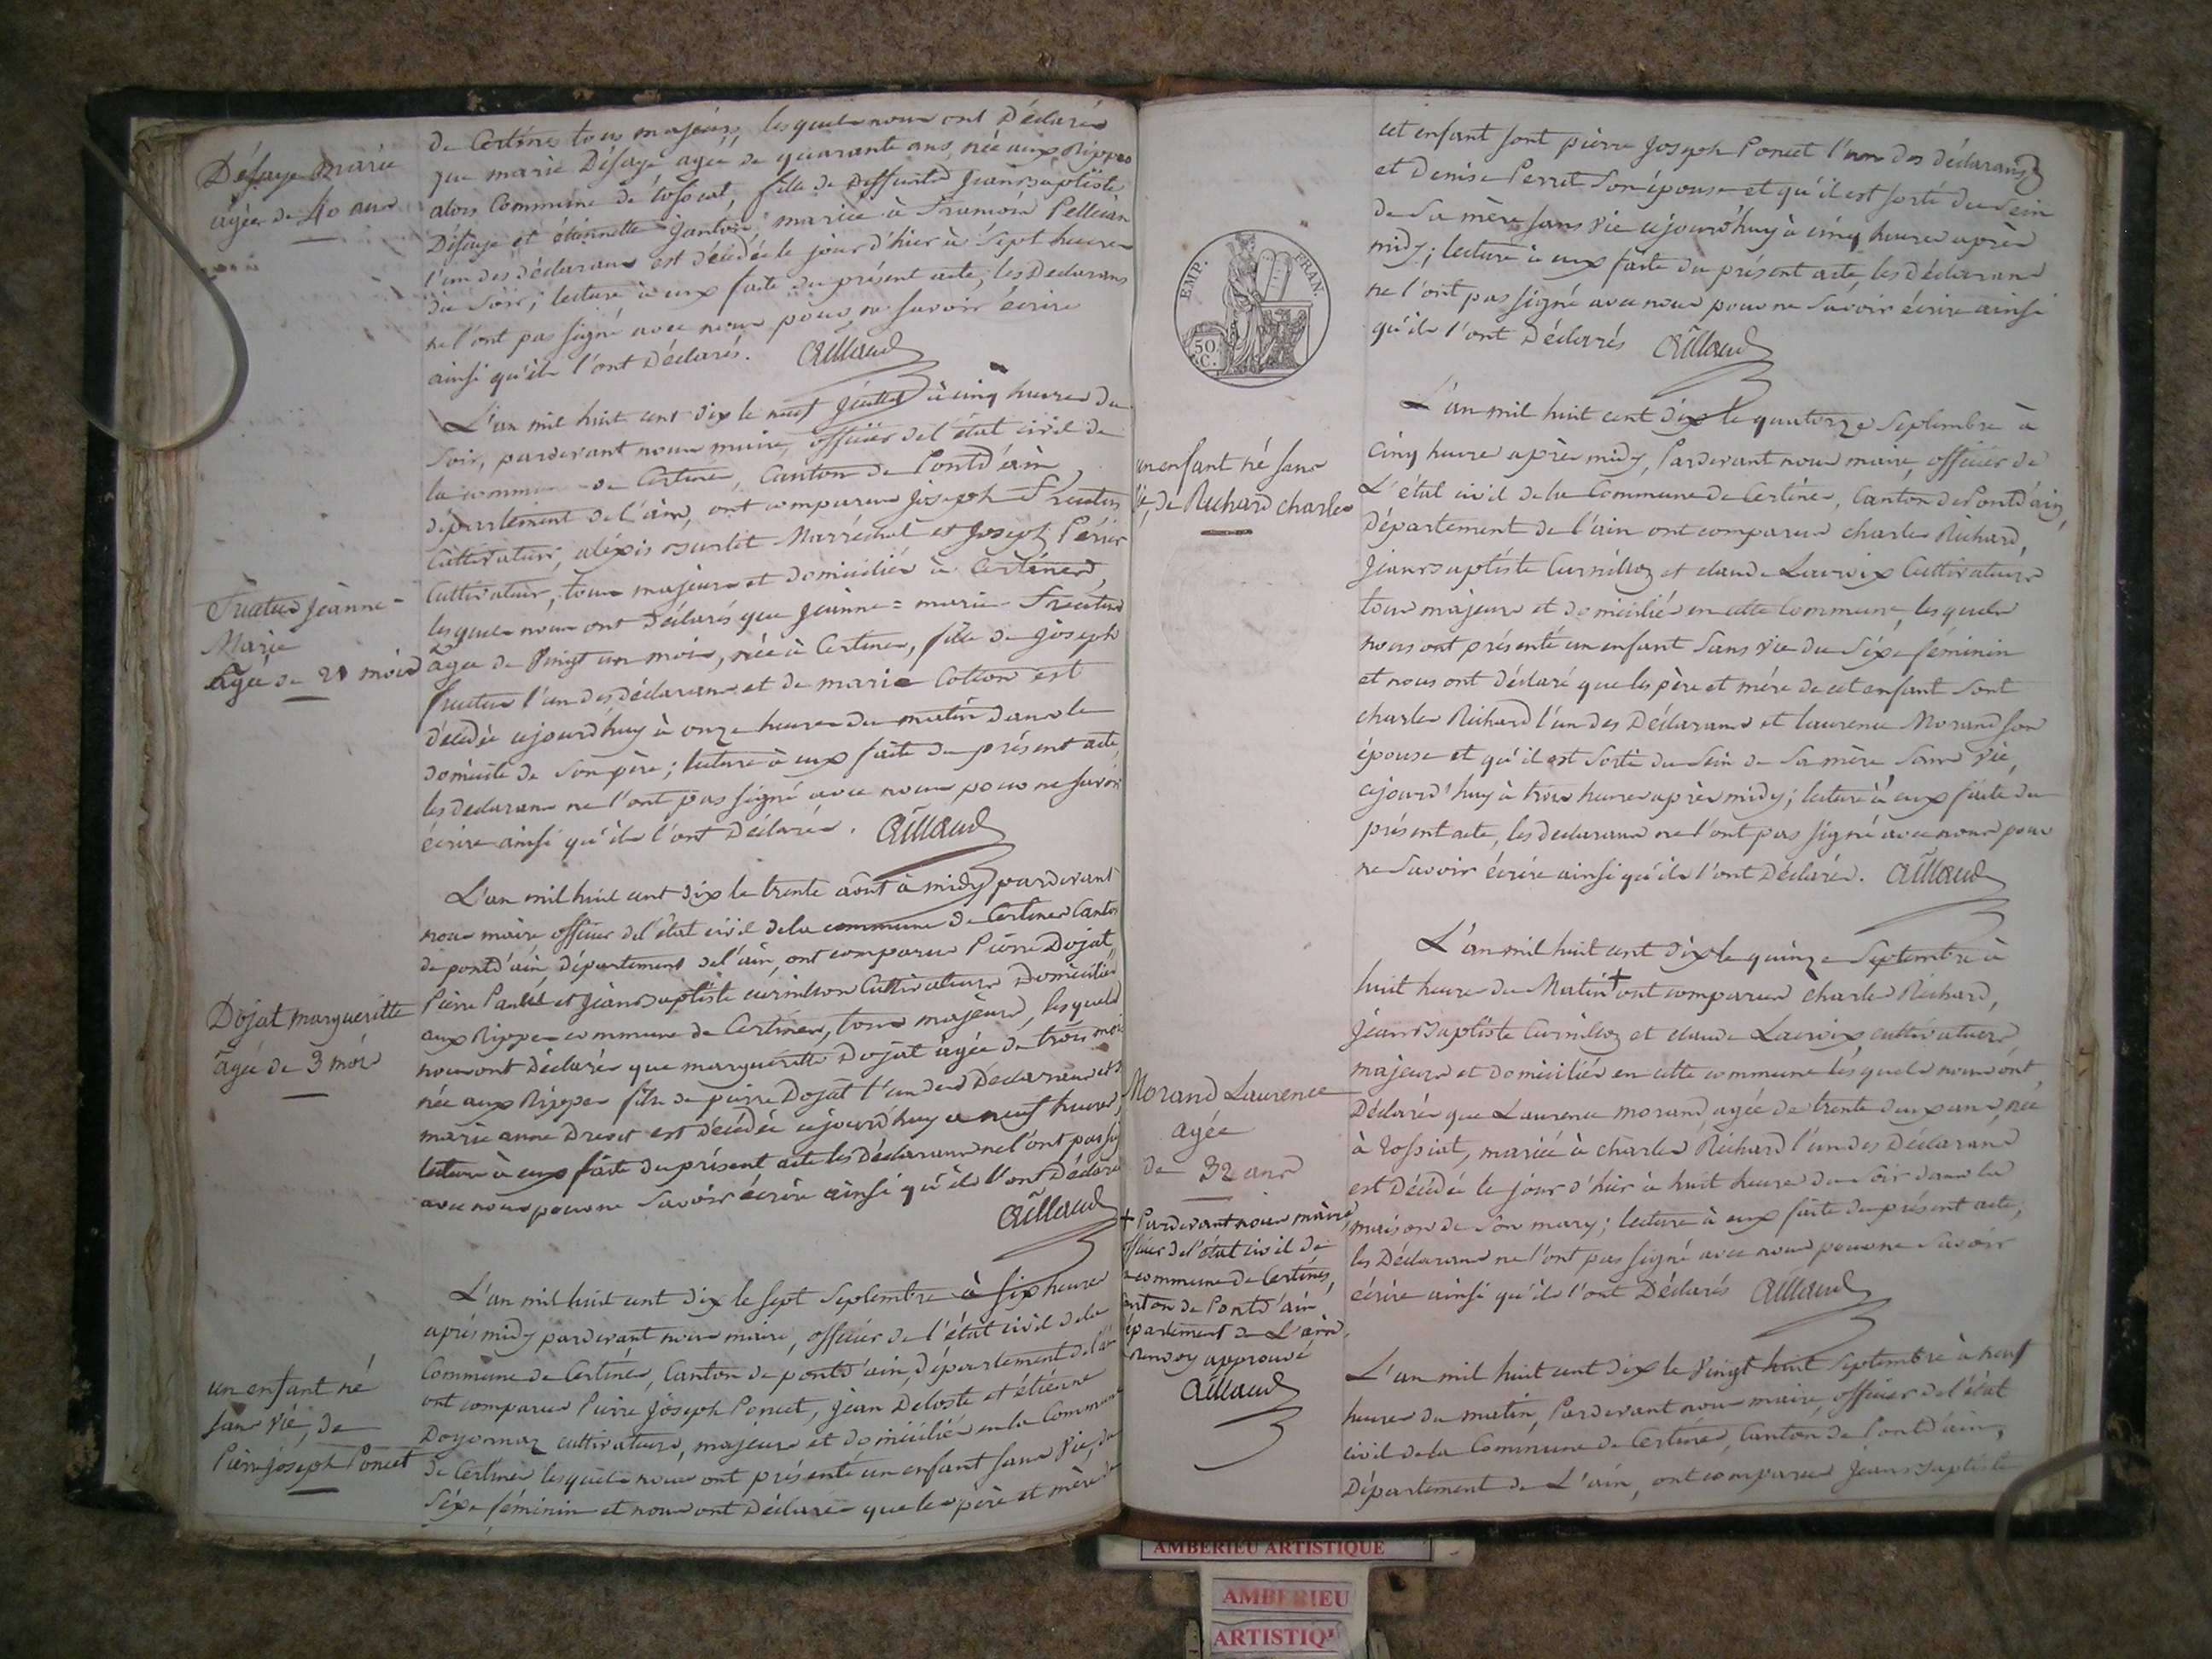 Défaye Marie
agée de 40 ans
de Certines tous majeurs, lesquels nous ont Déclarés
que marie Défaye agée de quarante ans, née aux Rippes
alors Commune de tossiat, fille de Deffunts Jeanbaptiste
Défaye et étiennette Janton, mariée à François Pellecin
l'un des déclarans est décédée le jour d'hier à Sept heures
du Soir; lecture à eux faite du présent acte, les Declarans
ne l'ont pas signé avec nous pour ne savoir écrire
ainsi qu'ils l'ont Déclarés. Aillaud
L'an mil huit cent dix le neuf Juillet à cinq heures du
Soir, pardevant nous maire, officier de l'état civil de
la commune de Certines, Canton de Pontd'ain,
département de l'ain, ont comparus joseph Fructus
Cultivateur, aléxis burlet Marréchal et Joseph Périer
Cultivateur, tous majeurs et domiciliés à Certines,
lesquels nous ont déclarés que Jeanne = marie Fructus
agée de Vingt un mois, née à Certines, fille de joseph
fructus l'un des déclarans et de marie Cotton est
décédée cejourd'huy à onze heures du matin dans le
domicile de Son père; lecture à eux faite du présent acte,
les declarans ne l'ont pas signé avec nous pour ne savoir
écrire ainsi qu'ils l'ont Déclarés. Aillaud
Fructus Jeanne =
Marie
Agée de 21 mois
L'an mil huit cent dix le trente août à midy pardevant
nous maire officier de l'état civil de la commune de Certines Canton
de pontd'ain, département de l'ain, ont comparus Pierre Dojat,
Pierre et Jeanbaptiste Cultivateurs Domiciliés
aux Rippes commune de Certines, tous majeurs, lesquels
nous ont déclarés que margueritte Dojat agée de trois mois
née aux Rippes fille de pierre Dojat l'un des Declarans et de
marie anne est décédée cejourd'huy a neuf heures,
lecture à eux faite du présent acte les Déclarans ne l'ont pas
avec nous pour ne Savoir écrire ainsi qu'ils l'ont Déclaré
Aillaud
Dojat marguerite
agée de 3 mois
L'an mil huit cent dix le sept Septembre à six heures
après midy pardevant nous maire, officier de l'état civil de la
Commune de Certines, Canton de pontd'ain, département de l'ain
ont comparus Pierre joseph Poncet, jean Deloste et étienne
Doyonnaz cultivateurs, majeurs et domiciliés en la Commune
de Certines lesquels nous ont présenté un enfant sans Vie, du
Séxe féminin et nous ont Déclarés que les père et mère de
un enfant né
sans Vie, de
Pierre joseph Poncet
EMP. FRAN.
50 C.
cet enfant sont pierre Joseph Poncet l'un des déclarans
et Denise Perret Son épouse et qu'il est sorti du Sein
de Sa mère sans Vie cejourd'huy à cinq heures après
midy; lecture à eux faite du présent acte, les déclarans
ne l'ont pas signé avec nous pour ne Savoir écrire ainsi
qu'ils l'ont Déclarés Aillaud
L'an mil huit cent dix le quatorze Septembre à
Cinq heures après midy, Pardevant nous maire, officier de
L'état civil de la Commune de Certines, Canton de Pontd'ain,
département de l'ain ont comparus charles Richard,
Jeanbaptiste Curnilloz et claude Lacroix Cultivateurs
tous majeurs et domiciliés en cette Commune, lesquels
nous ont présenté un enfant Sans vie du Séxe féminin
et nous ont déclaré que les père et mère de cet enfant Sont
charles Richard l'un des Déclarans et laurence Morand Son
épouse et qu'il est Sorti du Sein de Sa mère Sans Vie,
cejourd'huy à trois heures après midy; lecture à eux faite du
présent acte, les declarans ne l'ont pas signé avec nous pour
ne Savoir écrire ainsi qu'ils l'ont Déclarés. Aillaud
un enfant né sans
vie, de Richard charles
L'an mil huit cent dix le quinze Septembre à
huit heures du Matin + ont comparus charles Richard,
Jeanbaptiste Curnilloz et claude Lacroix, cultivateurs,
majeurs et domiciliés en cette commune lesquels nous ont,
Déclarés que Laurence morand agée de trente deux ans, née
à tossiat, mariée à charles Richard l'un des Déclarans
est Décédée le jour d'hier à huit heures du Soir dans la
maison de Son mary; lecture à eux faite du présent acte,
les Déclarans ne l'ont pas signé avec nous pour ne Savoir
écrire ainsi qu'ils l'ont Déclarés Aillaud
Morand Laurence
agée
de 32 ans
+ Pardevant nous maire,
officier de l'état civil de
commune de Certines,
canton de Pontd'ain,
département de L'ain.
renvoy approuvé
Aillaud
L'an mil huit cent dix le Vingt huit Septembre à neuf
heures du matin, Pardevant nous maire, officier de l'état
civil de la Commune de Certines, Canton de Pontd'ain,
Département de L'ain, ont comparus Jeanbaptiste
AMBERIEU ARTISTIQUE
AMBERIEU
ARTISTIQU